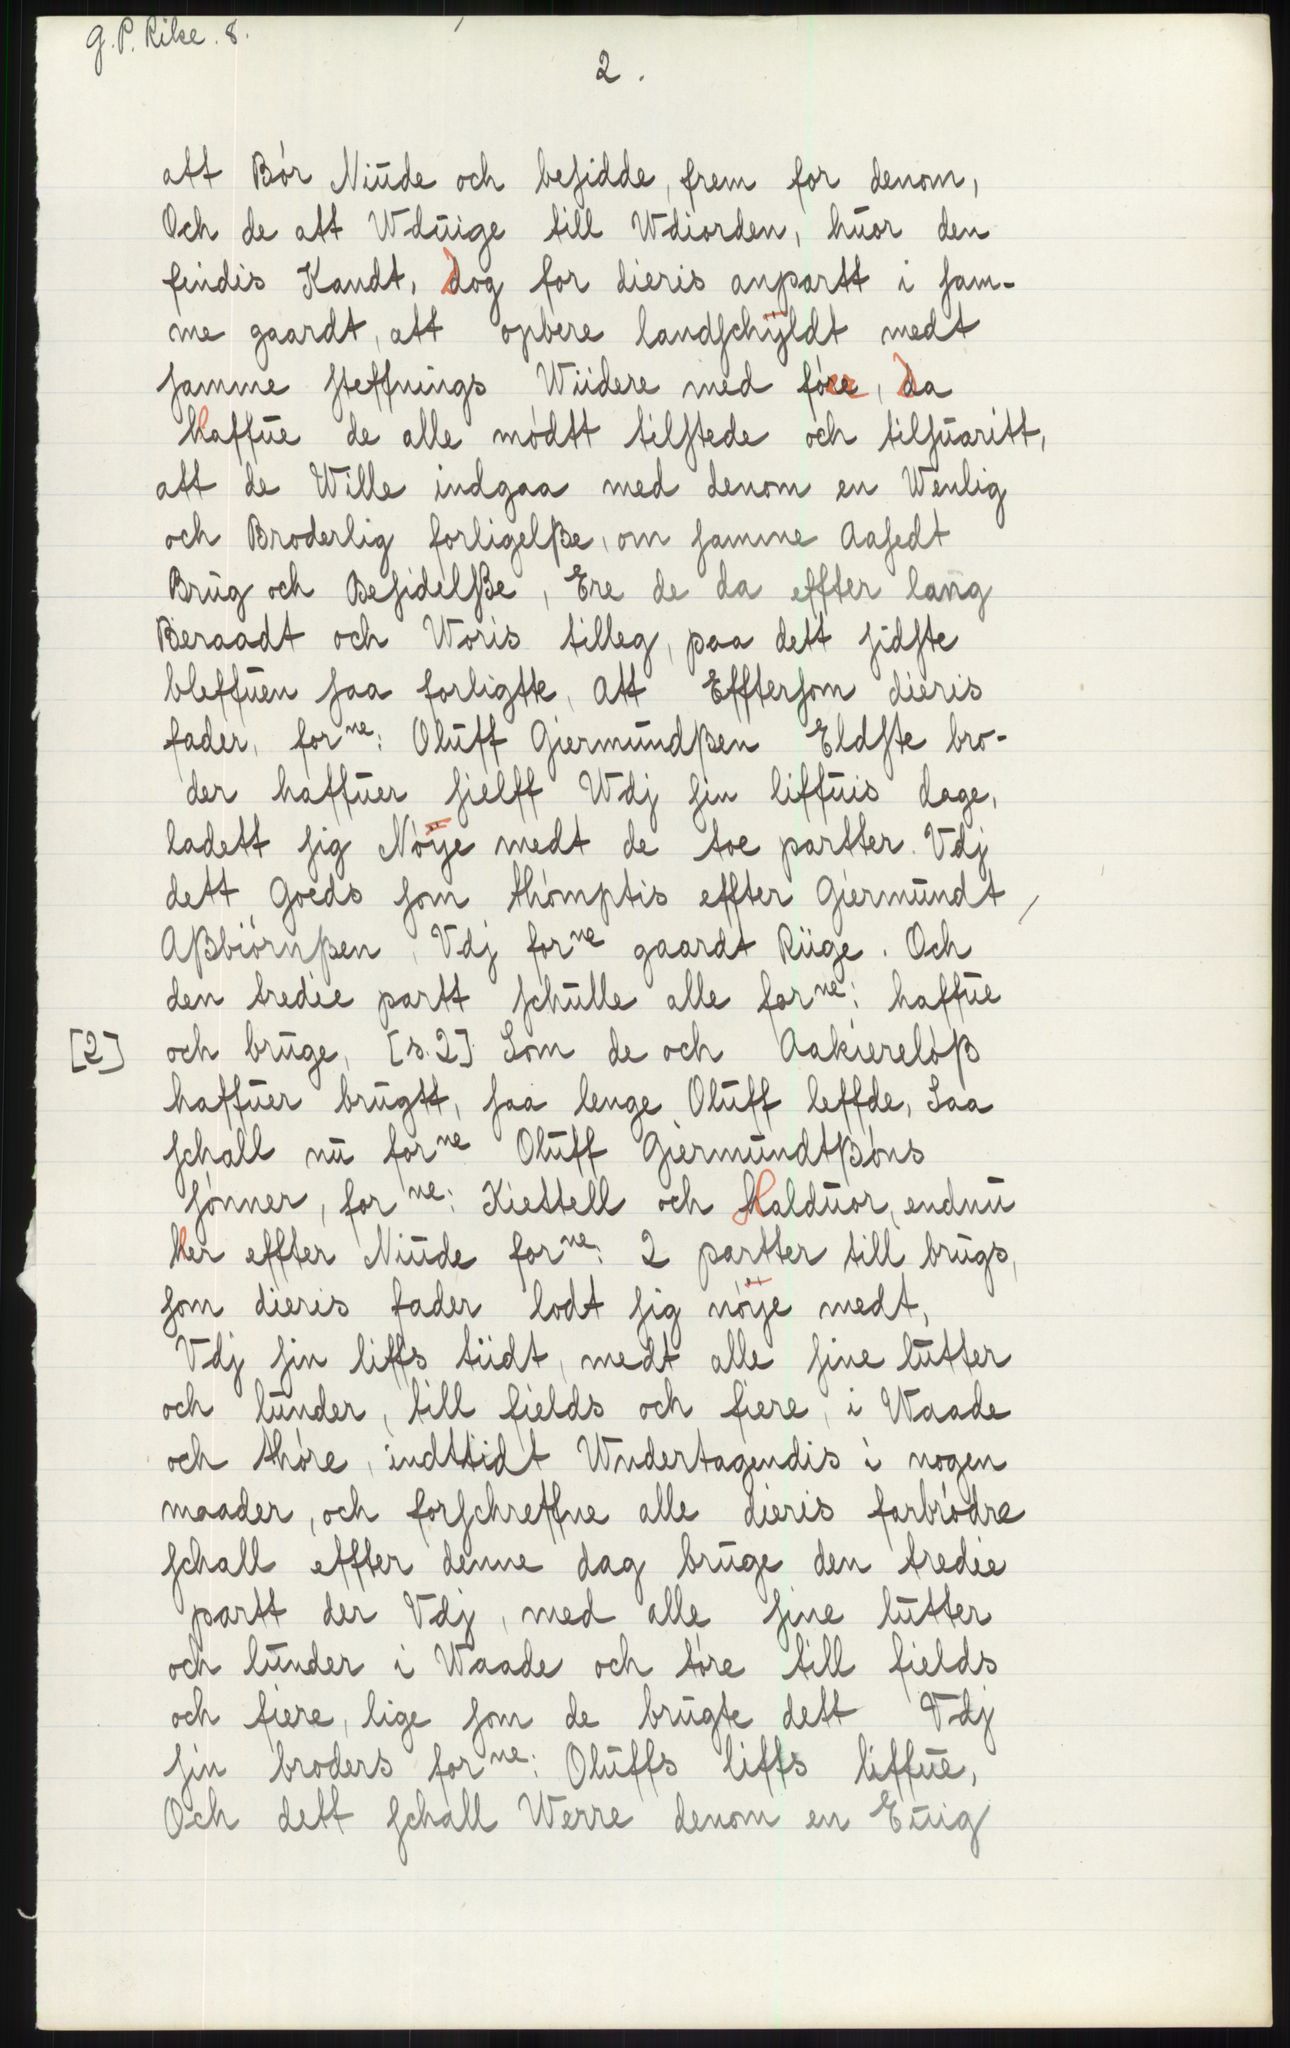 G. P. Rike. 8.
2.
att Bór Niúde och besidde, frem for denom,
Och de att Wdúige till Wdiorden, húor den
findis Kandt, dog for dieris anpartt i sam-
me gaardt, att opbere landschÿldt medt
samme steffnings Wiidere med fóre, da
haffúe de alle módtt tilstede och tilsúaritt,
att de Wille indgaa med denom en Wenlig
och Broderlig forligelße, om samme Aasedt
Brúg och Besidelße, Ere de da effter lang
Beraadt och Woris tilleg, paa dett sidste
bleffúen saa forligtte, Att Efftersom dieris
fader, forne: Olúff Giermúndßen Eldste bro-
der haffúer sielff Wdj sin liffúis dage,
ladett sig Nöÿe medt de toe partter Vdj
dett Goeds som thómptis effter Giermúndt
Aßbiórnßen, Vdj forne gaardt Riige. Och
den tredie partt schúlle alle forne: haffúe
[2] och brúge, [s. 2] Som de och Aakiærelóß
haffúer brúgtt, saa lenge Olúff leffde, Saa
schall nú forne Olúff Giermúndtßóns
sónner, forne: Kiettell och Haldúor, endnú
her effter Niúde forne: 2 partter till brúgs,
som dieris fader lodt sig nöÿe medt,
Vdj sin liffs tiidt, medt alle sine lútter
och lúnder, till fields och fiere, i Waade
och thóre, indttidt Wndertagendis i nogen
maader, och forschreffne alle dieris farbródre
schall effter denne dag brúge den tredie
partt der Vdj, med alle sine lútter
och lúnder i Waade och tóre till fields
och fiere, lige som de brúgte dett Vdj
sin broders forne: Olúffs liffs liffúe,
Och dett schall Werre denom en Eúig